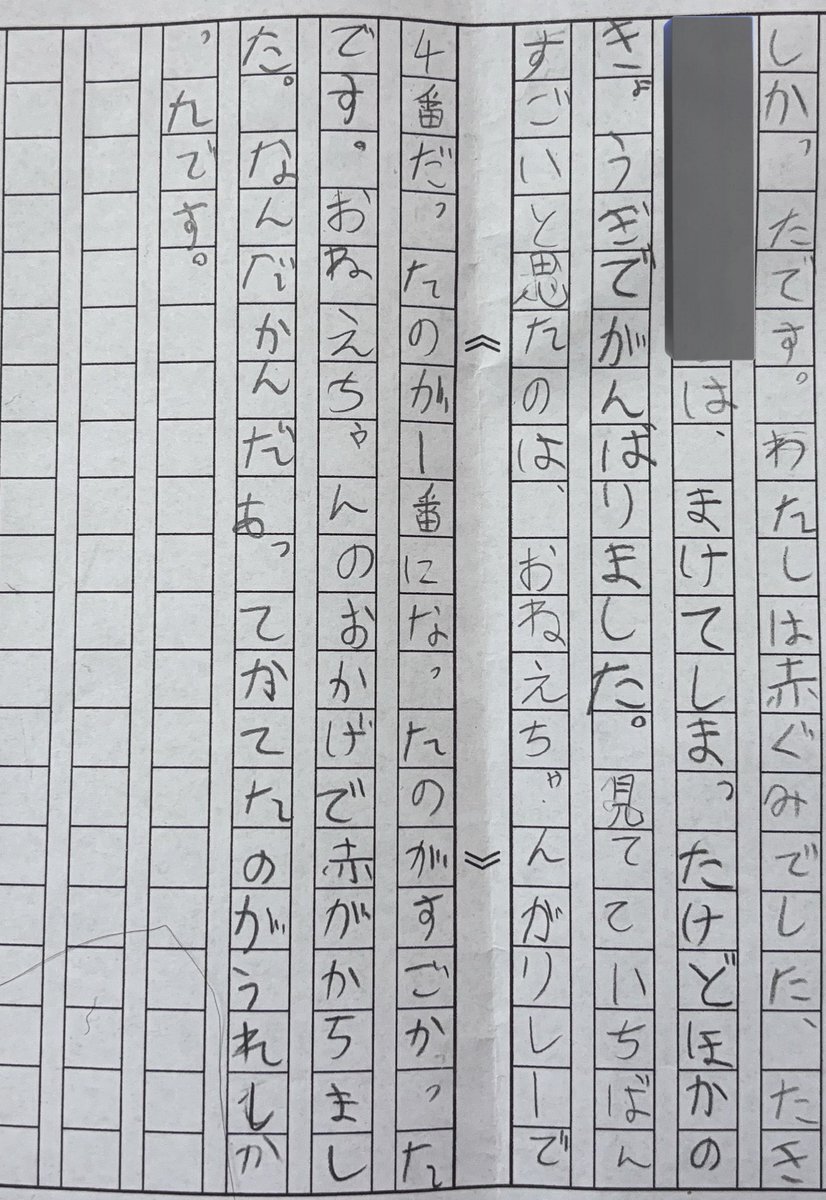 しかったです。わたしは赤ぐみでした、たき
は、まけてしまったけどほかの
きょうぎでがんばりました。見てていちばん
すごいと思たのは、おねえちゃんがりレーで
4番だったのが1番になったのがすごかった
です。おねえちゃんのおかげで赤がかちまし
た。なんだかんだあってかてたのがうれしか
ったです。